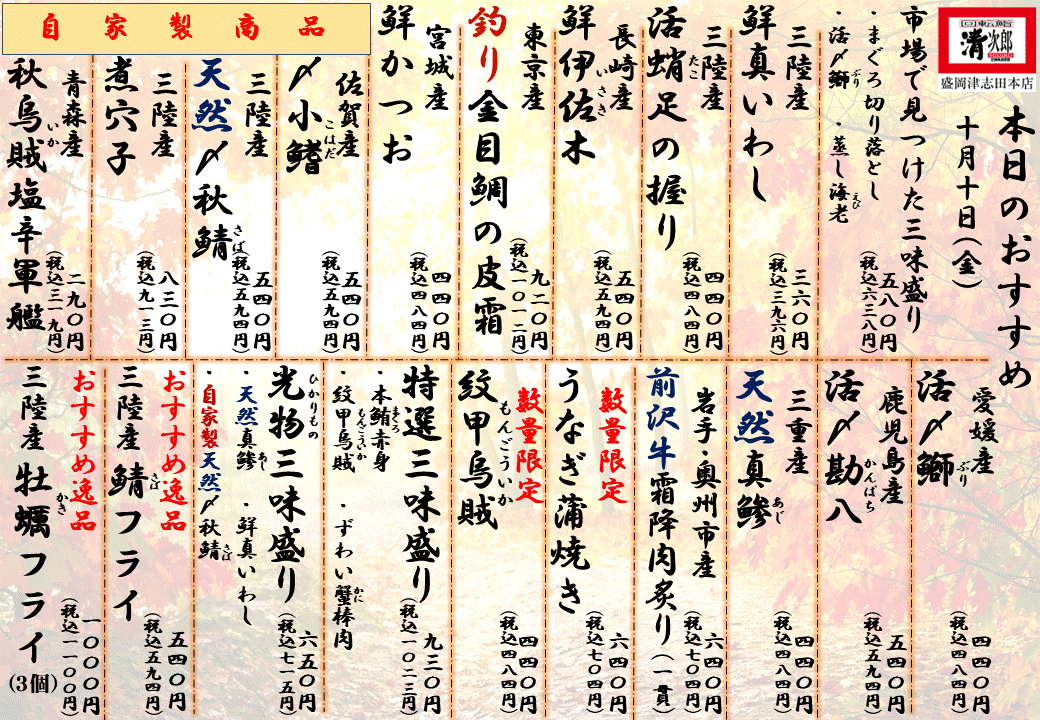 回転鮨
清次郎
SEIJIRO
盛岡津志田本店
本日のおすすめ
十月十日(金)
市場で見つけた三味盛り
・まぐろ切り落とし
・活〆鰤 ・蒸し海老
ぶり
えび
五八〇円
(税込六三八円)
三陸産
鮮真いわし
三六〇円
(税込三九六円)
三陸産
活蛸足の握り
たこ
四四〇円
(税込四八四円)
長崎産
鮮伊佐木
いさき
五四〇円
(税込五九四円)
東京産
釣り金目鯛の皮霜
九二〇円
(税込一〇一二円)
宮城産
鮮かつお
四四〇円
(税込四八四円)
自家製商品
佐賀産
〆小鰭
こはだ
五四〇円
(税込五九四円)
三陸産
天然〆秋鯖
さば
五四〇円
(税込五九四円)
三陸産
煮穴子
八三〇円
(税込九一三円)
青森産
秋烏賊塩辛軍艦
いか
二九〇円
(税込三一九円)
愛媛産
活〆鰤
ぶり
四四〇円
(税込四八四円)
鹿児島産
活〆勘八
かんぱち
五四〇円
(税込五九四円)
三重産
天然真鯵
あじ
四四〇円
(税込四八四円)
岩手・奥州市産
前沢牛霜降肉炙り(一貫)
六四〇円
(税込七〇四円)
数量限定
うなぎ蒲焼き
六四〇円
(税込七〇四円)
数量限定
紋甲烏賊
もんごういか
四四〇円
(税込四八四円)
特選三味盛り
・本鮪赤身
まぐろ
・紋甲烏賊 ・ずわい蟹棒肉
もんごういか
かに
九三〇円
(税込一〇二三円)
光物三味盛り
ひかりもの
・天然真鯵 ・鮮真いわし
あじ
・自家製天然〆秋鯖
さば
六五〇円
(税込七一五円)
おすすめ逸品
三陸産 鯖フライ
さば
五四〇円
(税込五九四円)
おすすめ逸品
三陸産 牡蠣フライ(3個)
かき
一〇〇〇円
(税込一一〇〇円)